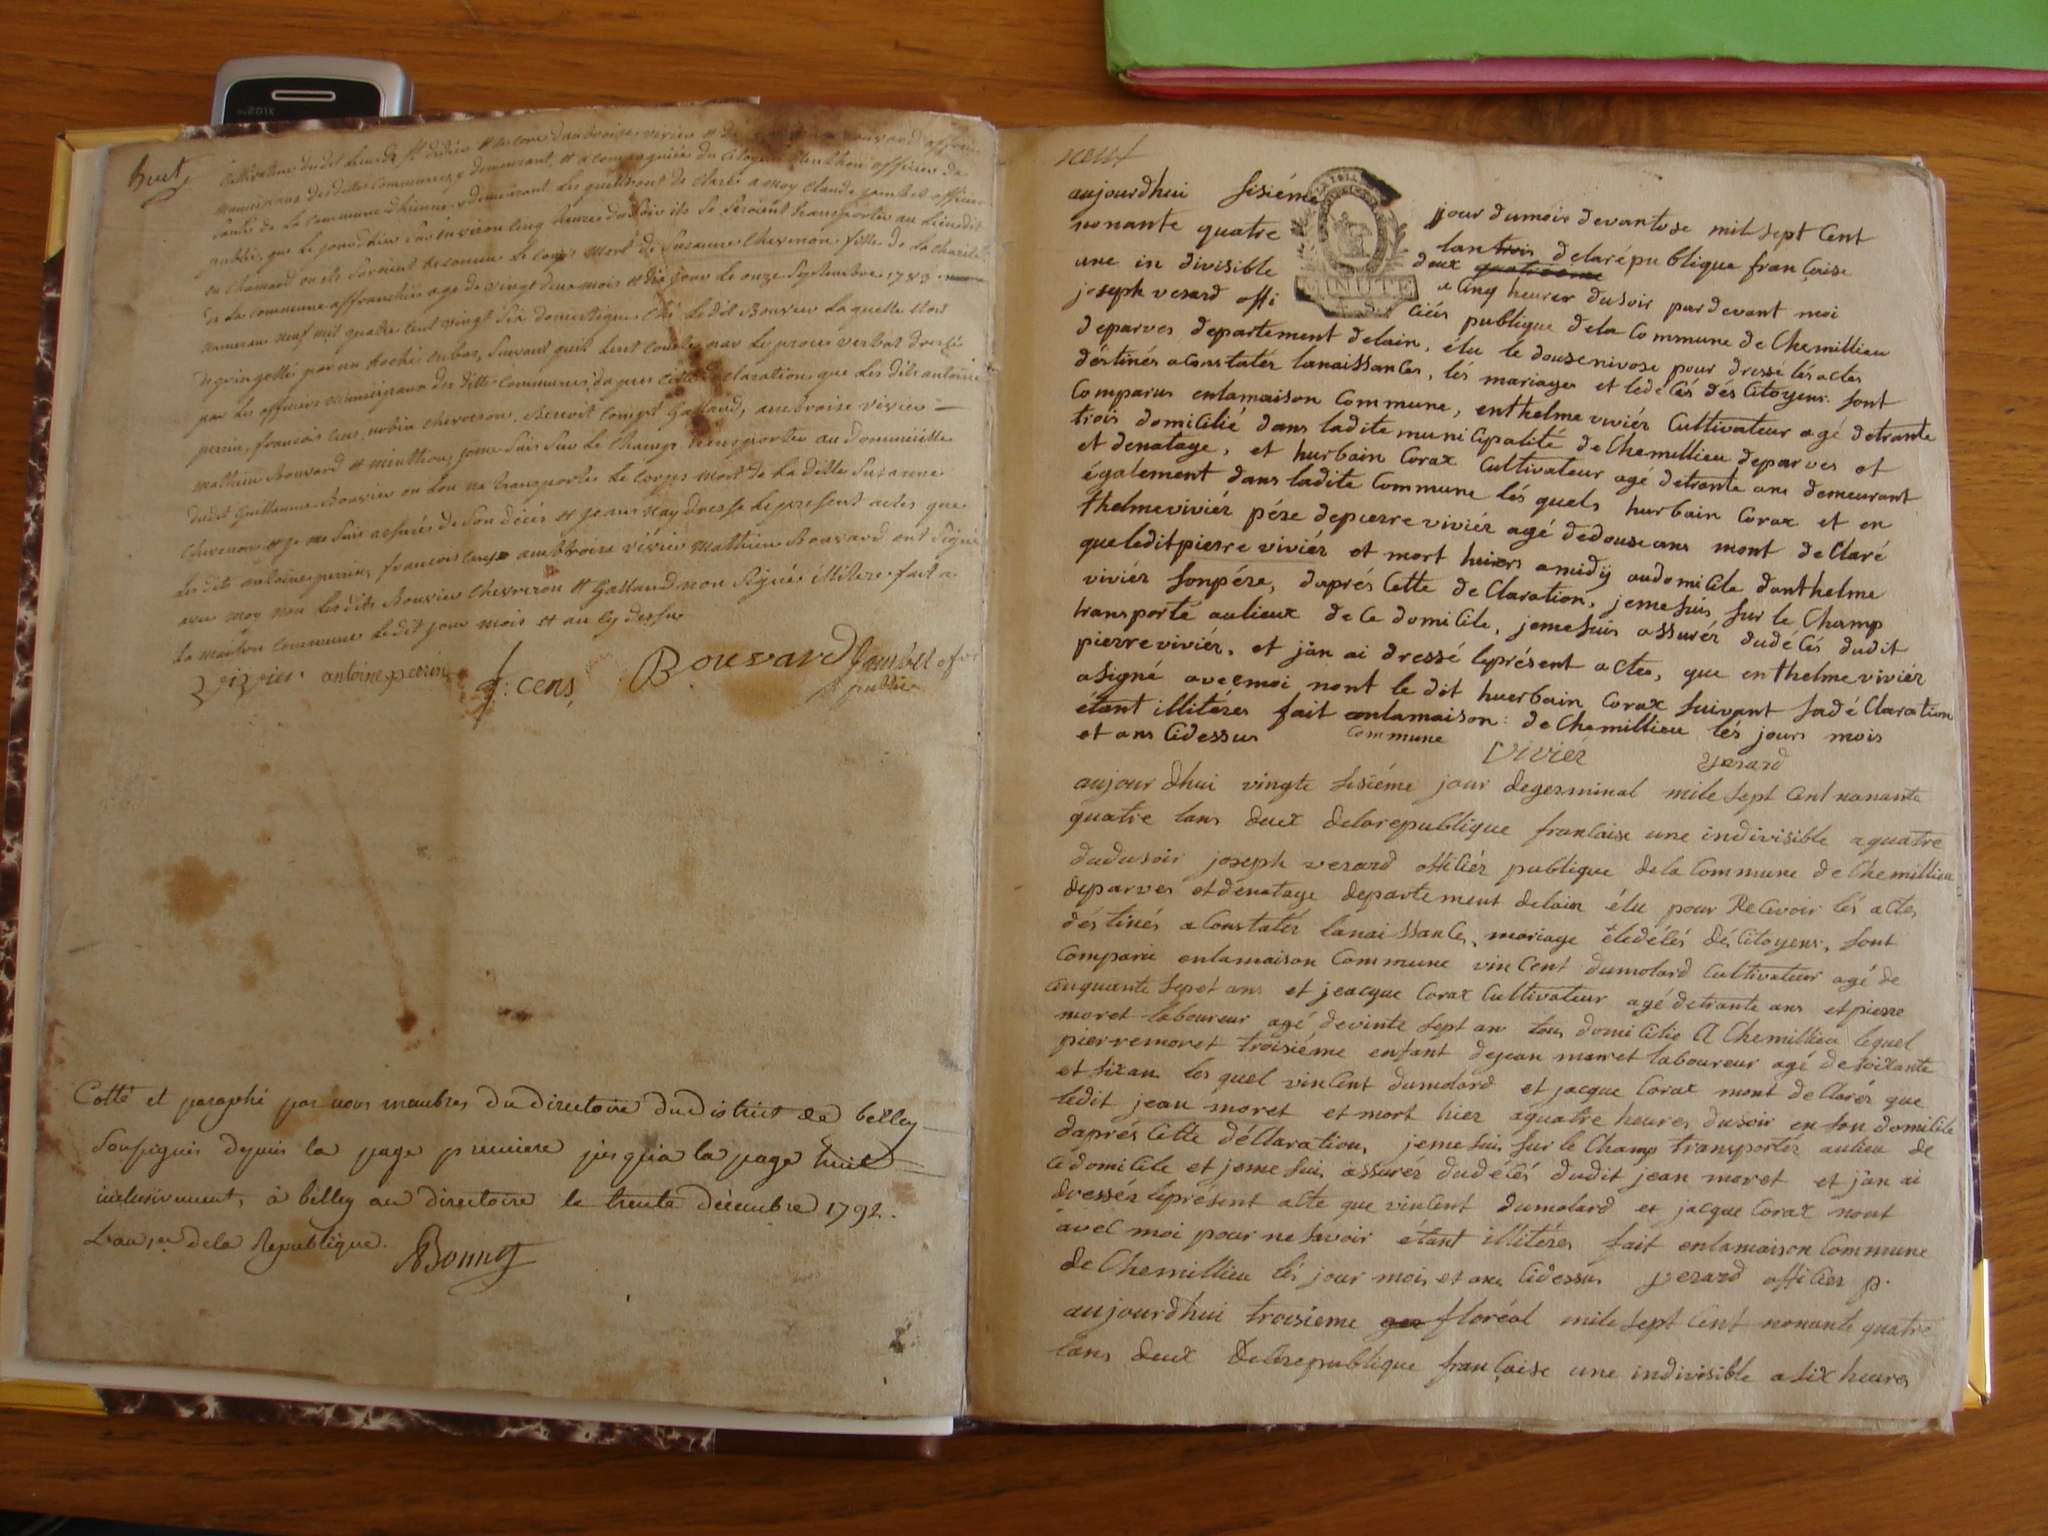 huit
cultivateur dudit lieu de St didier et de ambroise vivier et de bouvard
municipaux desdittes communes y demeurant, et acompagniés du citoyen minthon officier de
santé de la commune dhienne y demeurant. Les quels mont de claré a moy Claude jambet officier
public, que le jourdhier sur environ cinq heures du soir ils se seroient transportés au lieudit
en chamard ou ils seroient reconnu le corps mort de Suzanne Chevron fille de la charité
de la commune affranchie age de vingt deux mois et dix jour le onze Septembre 1783
numeraux neuf mil quatre cent vingt Six domestique ché le dit Bouvier laquelle
degringollé par un roché enbas, suivant quil leur conste par le proces verbal dressé
par les officiers municipaux des ditte Communes, da pres cette declaration que les dits antoine
perrin, francois cens, urbin chevreron, Benoit Compt Galland, ambroise vivier
mathieu Bouvard et minthon, jeme suis sur le Champs transportés au dommicille
dudit Guillaume Bouvier ou lon na transportés le corps mort de la ditte Suzanne
Chevron et je me suis assurés de son décés et jenn nay dresse le present actes que
les dits antoine perrin, francois cens ambroise vivier mathieu Bouvard ont signé
avec moy non les dits Bouvier Chevreron et Galland non signés illiteré fait a
la maison commune ledit jour mois et an cy dessu
vizvier antoine perrin f: cens, Bouvard Jambet ofor
public
Cotté et paraphé par nous membres du directoire du District de belley
Soussignés depuis la page premiere jusqu'a la page huit
inclusivement, à belley au directoire le trente décembre 1792.
L'an 1er de la Republique. Bonnet
neuf
aujourdhui sisiéme jour dumois devantose mil sept Cent
nonante quatre lan trois delarépublique française
une in divisible deux quatrieme a Cinq heures dusoir pardevant moi
MINUTE
joseph verard offi ciér publique dela Commune de Chemillieu
deparves departement delain, élu le douse nivose pour dresse lés actes
déstinés aConstatés lanaissances, lés mariages et ledécés dés Citoyens. sont
Comparus enlamaison Commune, enthelme viviér Cultivateur agé detrante
trois domicilié dans ladite municipalité deChemillieu deparves et
et denatage, et hurbain Corax Cultivateur agé detrante ans demeurant
également dans ladite Commune lés quels hurbain Corax et en
thelmeviviér pére depierre viviér agé dedouse ans mont deClaré
queleditpierre viviér et mort hiers amidij audomiCile danthelme
viviér sonpére, daprés Cette deClaration, jemesuis sur le Champ
transporté aulieux dece domicile, jemesuis assurér dudéCés dudit
pierreviviér, et jân ai dressé leprésent actes, que enthelme viviér
asigné avecmoi nont le dit huerbain Corax suivant sadéClaration
étant illitéres fait enlamaison: deChemillieu lés jours mois
et ans Cidessus Commune
Viviér verard
aujour dhui vingte sisiéme jour degerminal mile sept Cent nonante
quatre lans deux delarepublique francaise une indivisible aquatre
dudusoir joseph verard offiCiér publique dela Commune deChemillieu
deparves etdenatage departement delain élu pour Recevoir lés actes
déstinés aConstatér lanaissanCe, mariage etledéCés dés Citoyens, sont
Comparu enlamaison Commune vinCent dumolard Cultivateur agé de
Cinquante sept ans et jeacque Corax Cultivateur agé detrante ans et pierre
moret laboureur agé devinte sept an tous domicilie A Chemillieu lequel
pierremoret troisiéme enfant dejean moret laboureur agé desoixante
et sixan les quel vinCent dumolard et jacque Corax mont deClarér que
ledit jean moret et mort hier aquatre heures dusoir en son domiCile
daprés Cette déClaration, jemesuis sur le Champ transportér aulieu de
Cédomicile et jemesuis assurér dudéCés dudit jean moret et jân ai
dressér leprésent acte que vincent dumolard et jacque Corax nont
avec moi pour ne savoir étant illitéres fait enlamaison Commune
deChemillieu lés jour mois et ans Cidessus verard offiCier p.
aujourdhui troisieme ger floréal mile sept Cent nonante quatre
lans deux delarepublique française une indivisible asix heures